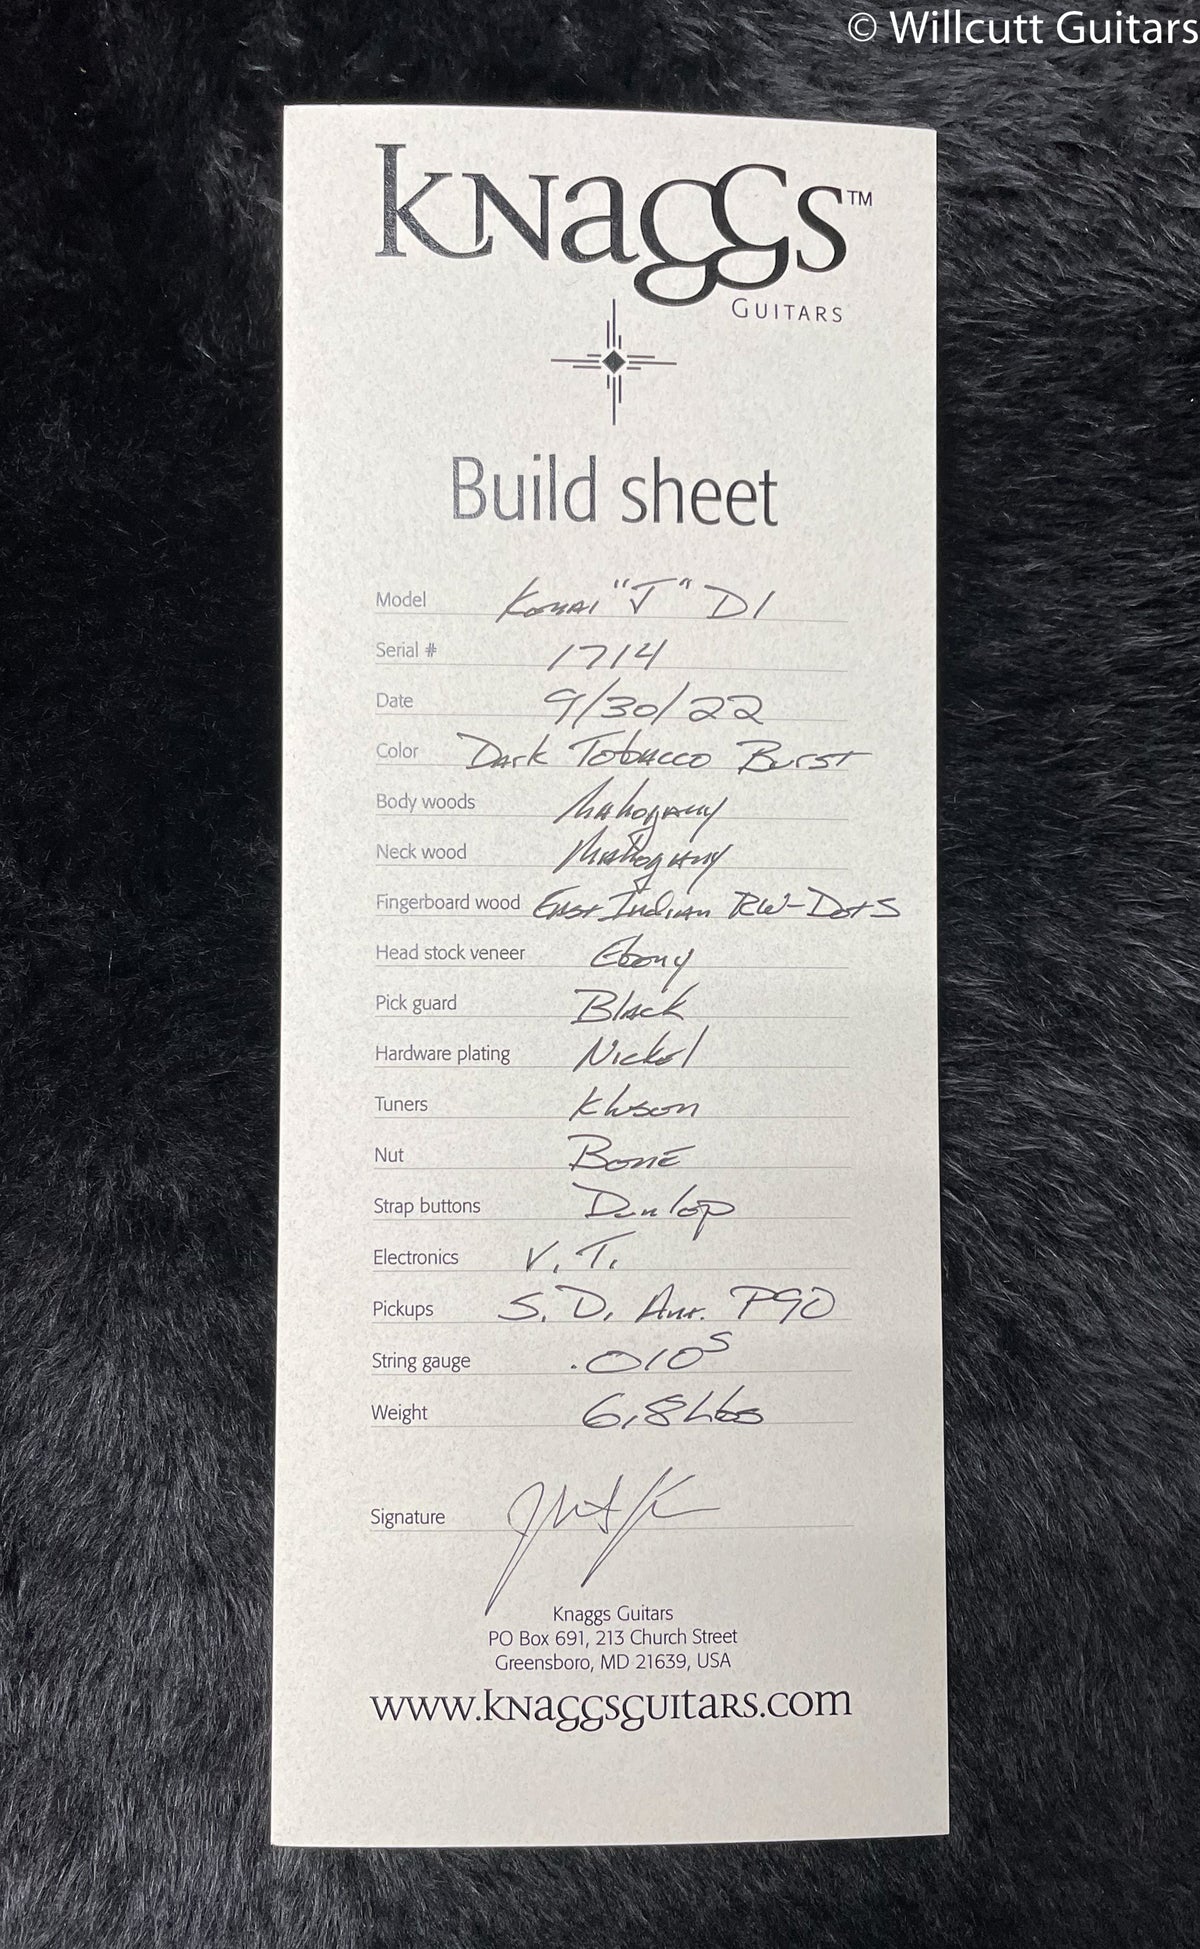 © Willcutt Guitars
KNaGGS™
GUITARS
Build sheet
Model Konai "J" D1
Serial # 1714
Date 9/30/22
Color Dark Tobacco Burst
Body woods Mahogany
Neck wood Mahogany
Fingerboard wood East Indian RW-Dots
Head stock veneer Ebony
Pick guard Black
Hardware plating Nickel
Tuners Kluson
Nut Bone
Strap buttons Dunlop
Electronics V. T.
Pickups S. D. Ant. P90
String gauge .010s
Weight 6.8 Lbs
Signature
Knaggs Guitars
PO Box 691, 213 Church Street
Greensboro, MD 21639, USA
www.KNaGGSGUITARS.com